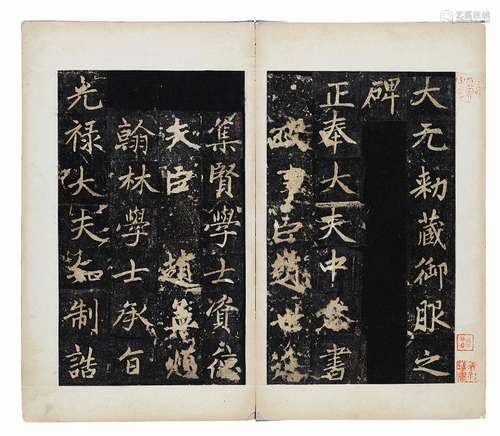 大元勑藏御服之
碑
正奉大夫中書
政事臣趙世延
集賢學士資德
夫臣 趙孟頫
翰林學士承旨
光祿大夫知制誥